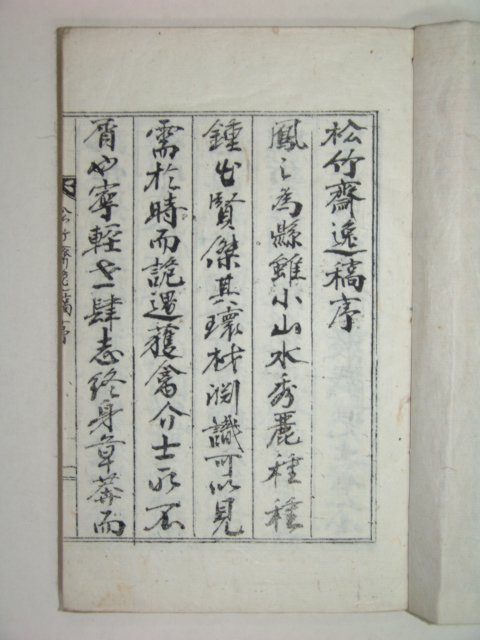 松竹齋逸稿序
鳳之爲縣雖小山水秀麗種種
鍾出賢傑其瓌材淵識可以見
需於時而詭遇獲禽介士所不
屑也寧輕世肆志終身草莽而
松竹齋逸稿序